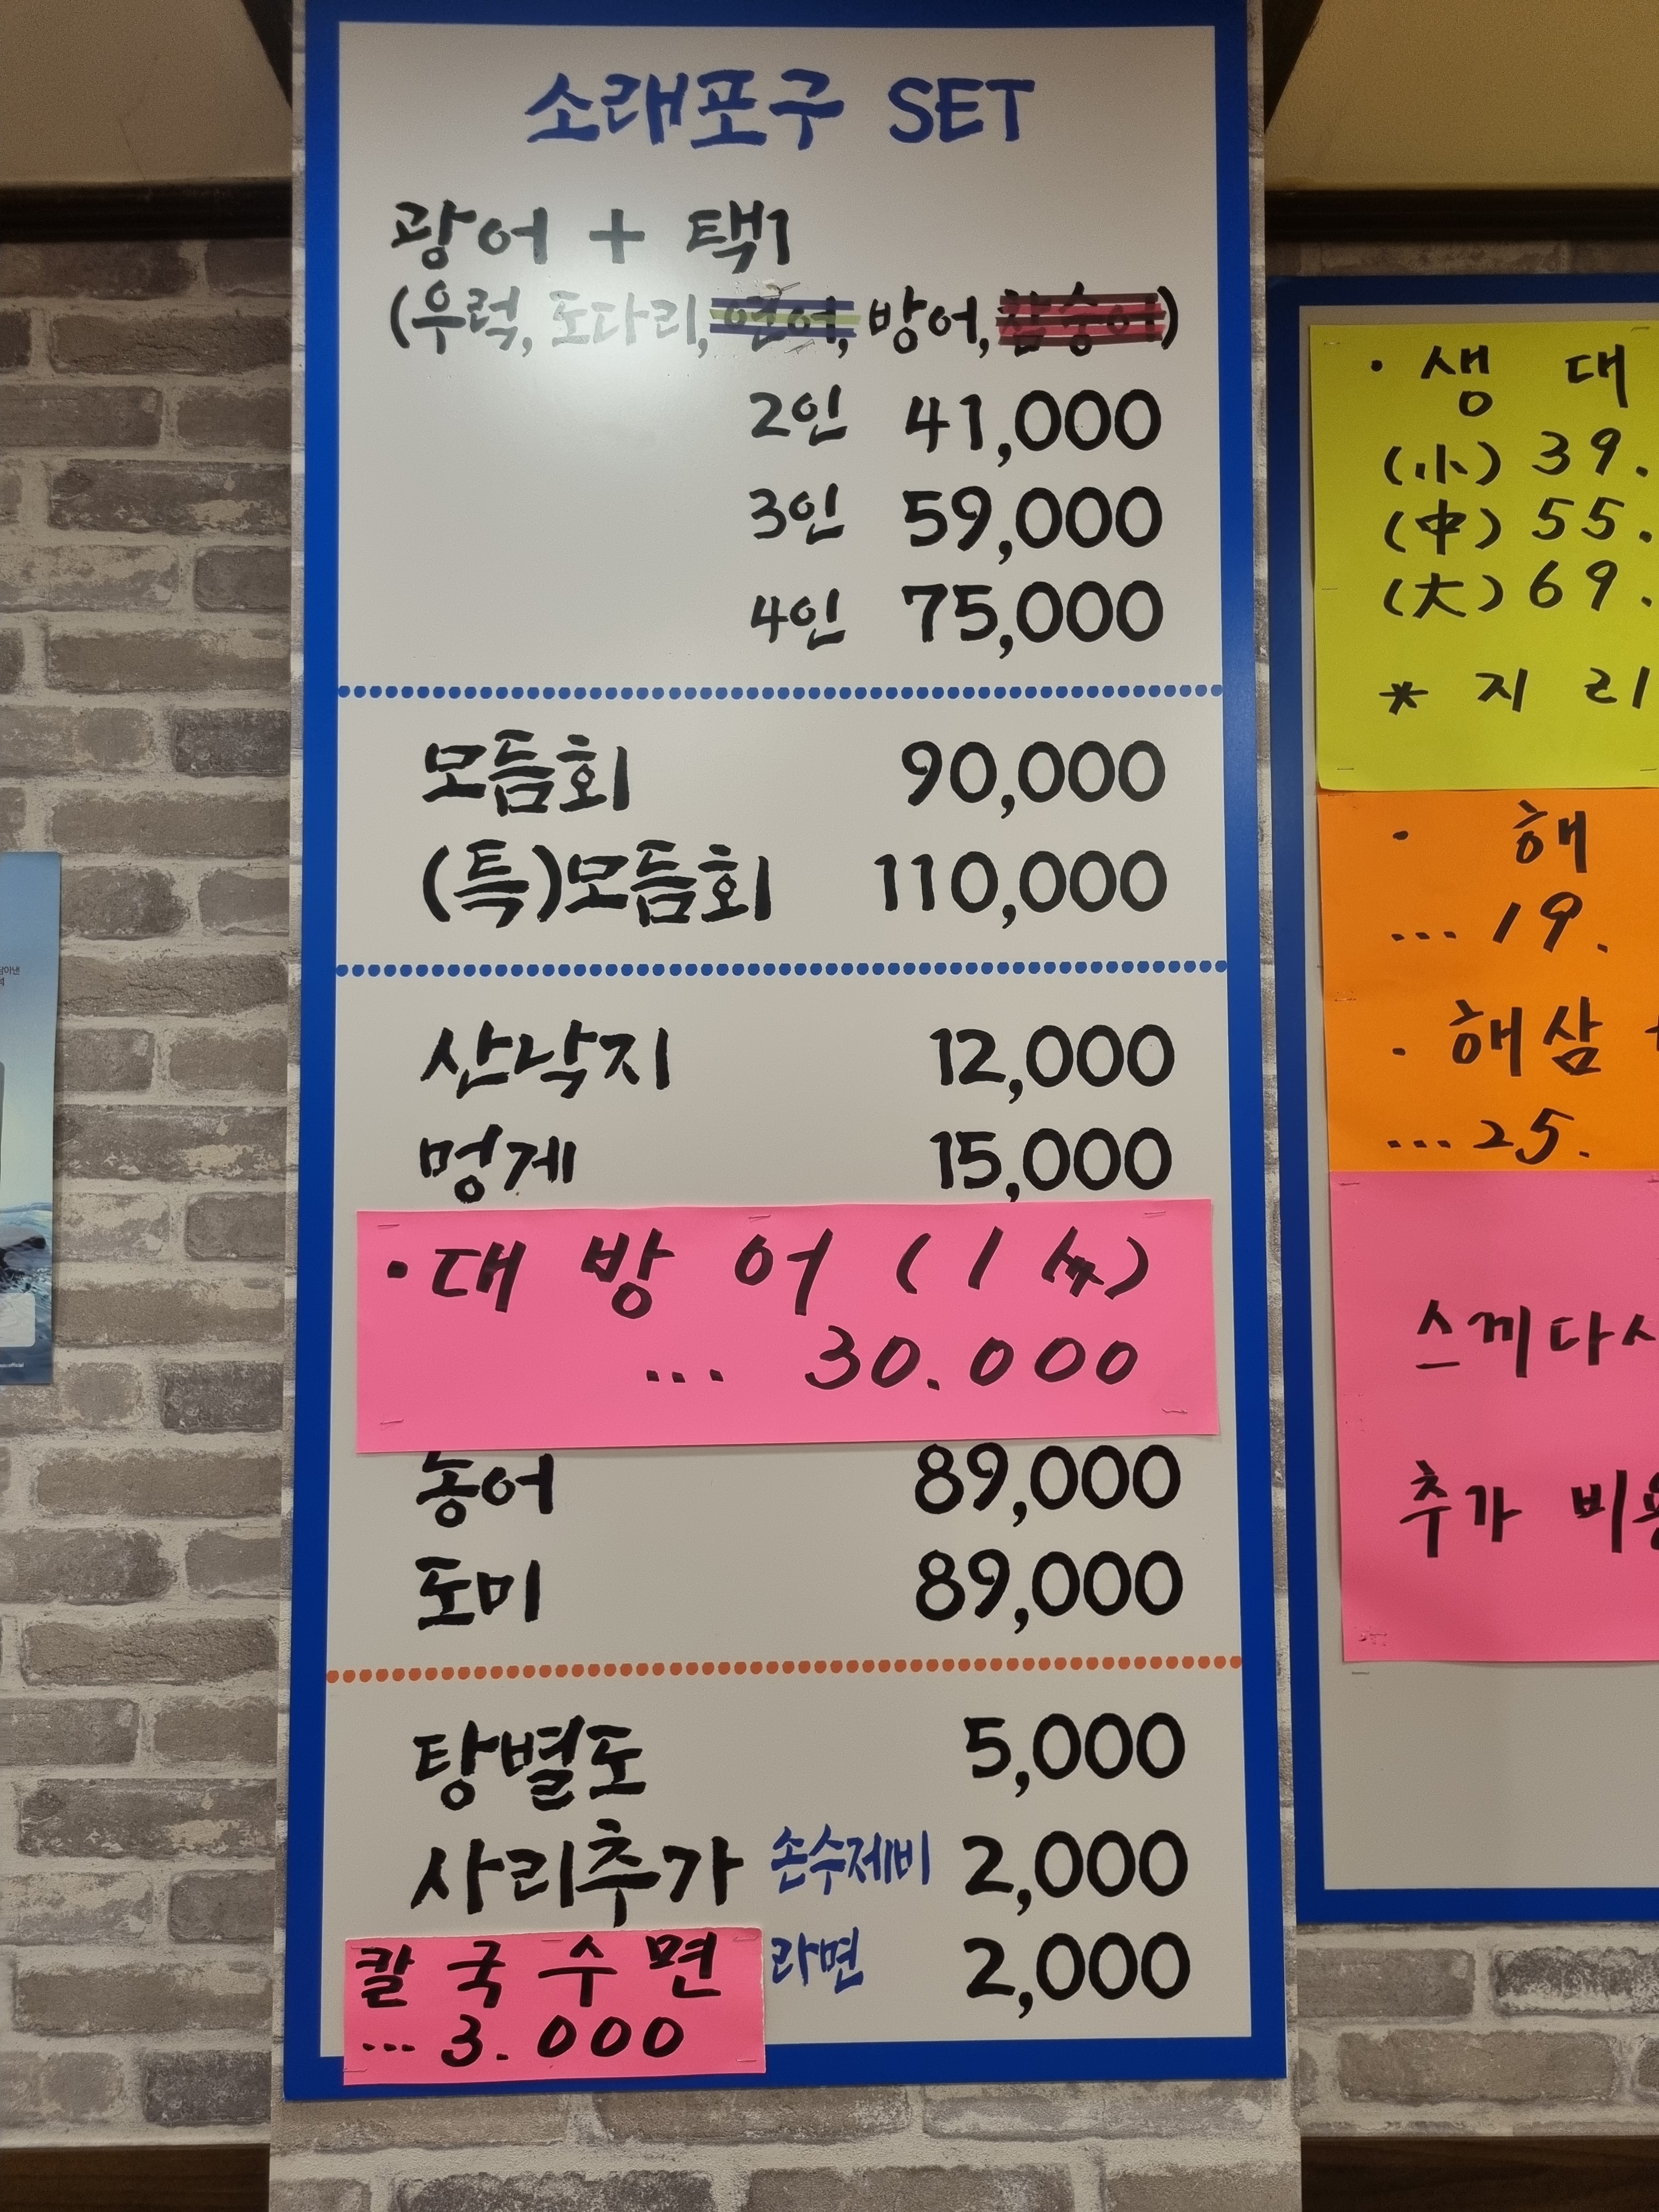 소래포구 SET
광어 + 택1
(우럭, 도다리, 연어, 방어, 참숭어)
2인 41,000
3인 59,000
4인 75,000
모듬회 90,000
(특)모듬회 110,000
산낙지 12,000
멍게 15,000
·대 방 어 (1人)
... 30.000
농어 89,000
도미 89,000
탕별도 5,000
사리추가 손수제비 2,000
라면 2,000
칼 국 수 면
... 3.000
· 생 대
(小) 39.
(中) 55.
(大) 69.
* 지 리
· 해
... 19.
· 해삼
... 25.
스끼다시
추가 비용